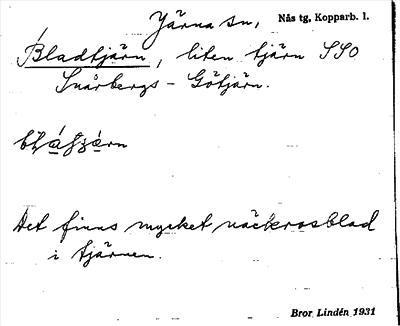 Järna sn, Nås tg, Kopparb. l.
Bladtjärn, liten tjärn SSO
Snårbergs-Götjärn.
Det finns mycket näckrosblad
i tjärnen.
Bror Lindén 1931